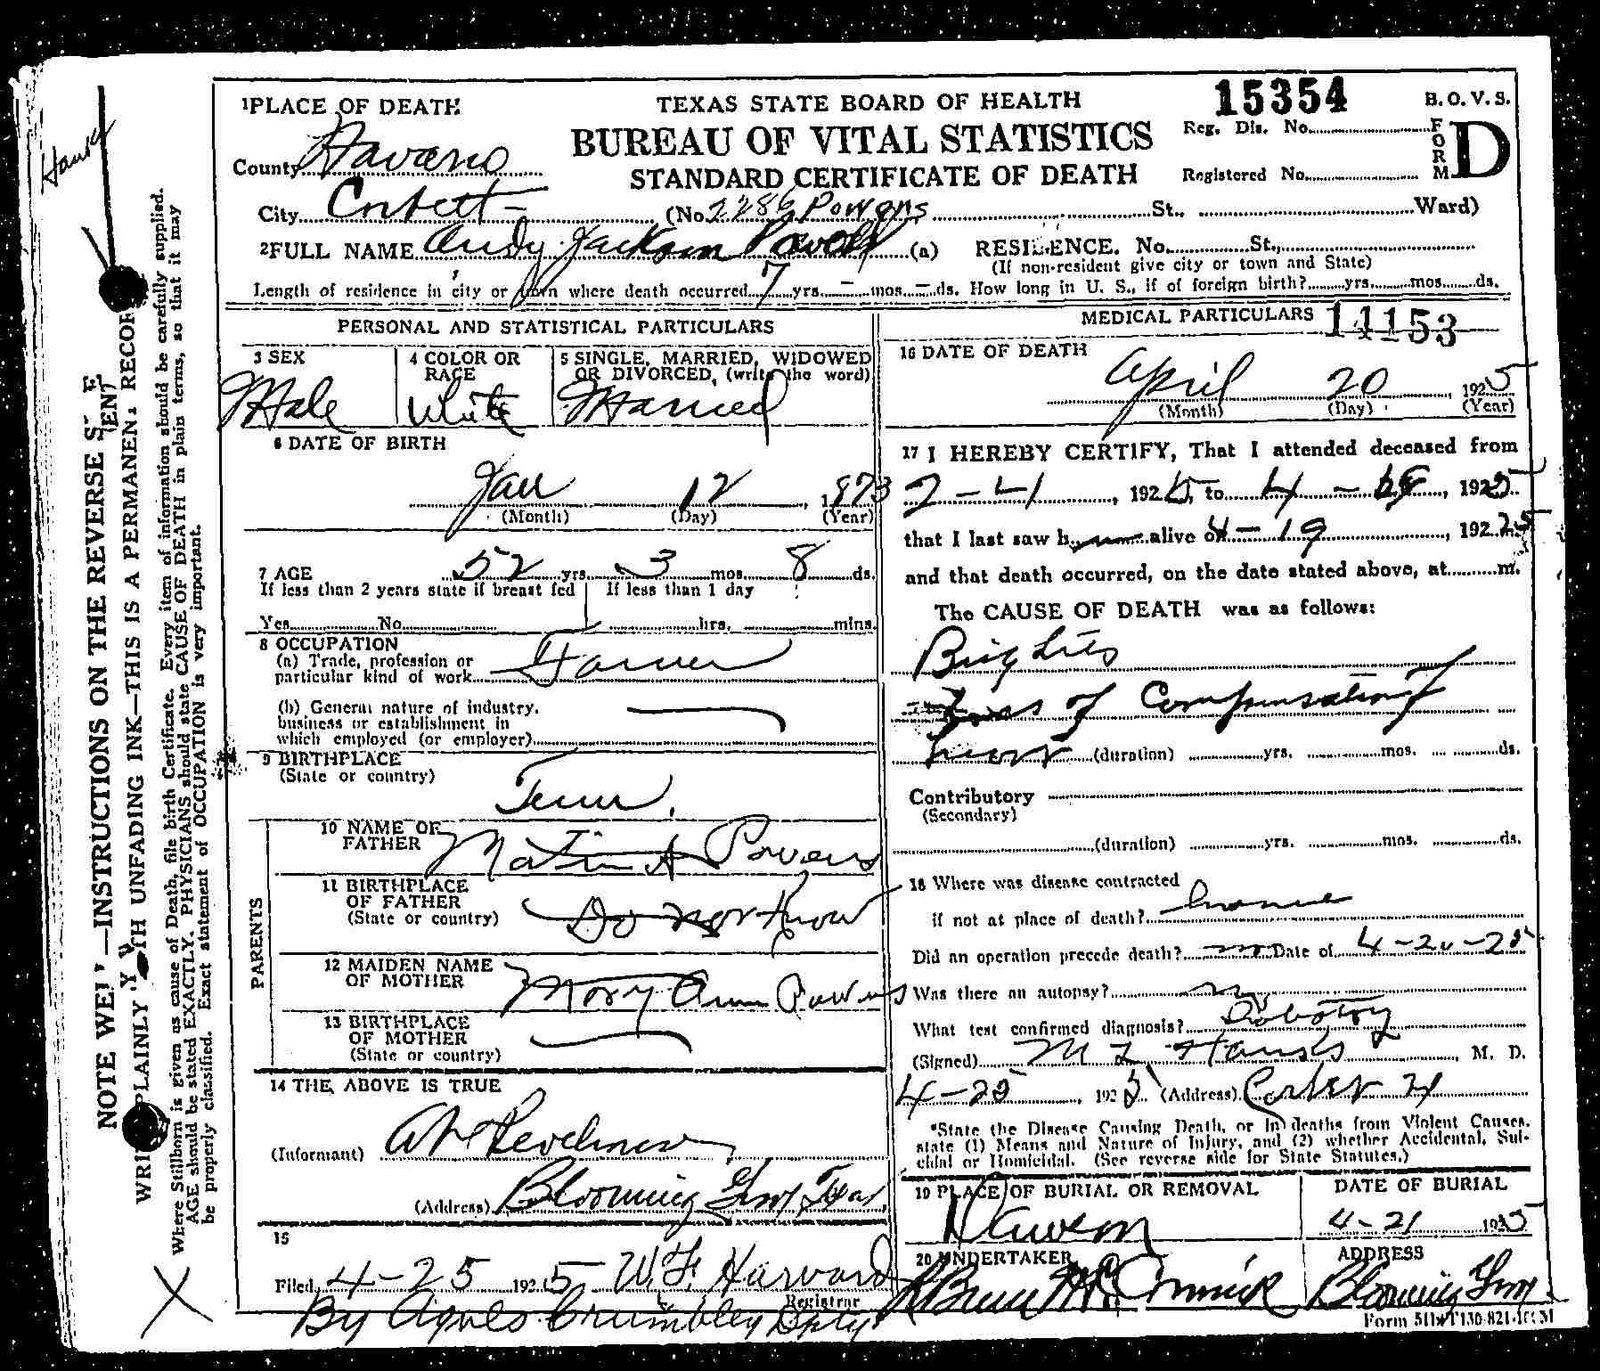 15354
B. O. V. S.
1 PLACE OF DEATH
TEXAS STATE BOARD OF HEALTH
Reg. Dis. No.
FORM D
County Navarro
BUREAU OF VITAL STATISTICS
STANDARD CERTIFICATE OF DEATH
Registered No.
City Corbett (No. 2286 Powers St., Ward)
2 FULL NAME Andy Jackson (a) RESIDENCE. No. St.,
(If non-resident give city or town and State)
Length of residence in city or town where death occurred 7 yrs. - mos. - ds. How long in U. S., if of foreign birth? yrs. mos. ds.
PERSONAL AND STATISTICAL PARTICULARS
3 SEX
Male
4 COLOR OR RACE
White
5 SINGLE, MARRIED, WIDOWED
OR DIVORCED, (write the word)
Married
6 DATE OF BIRTH
Jan 12, 1873
(Month) (Day) (Year)
7 AGE 52 yrs. 3 mos. 8 ds.
If less than 2 years state if breast fed
Yes No
If less than 1 day
hrs. mins.
8 OCCUPATION
(a) Trade, profession or
particular kind of work Farmer
(b) General nature of industry,
business or establishment in
which employed (or employer)
9 BIRTHPLACE
(State or country)
Tenn.
PARENTS
10 NAME OF
FATHER
Powers
11 BIRTHPLACE
OF FATHER
(State or country)
Do not Know
12 MAIDEN NAME
OF MOTHER
Mary Ann Powers
13 BIRTHPLACE
OF MOTHER
(State or country)
14 THE ABOVE IS TRUE
(Informant)
(Address) Blooming Grove Texas
15
Filed 4-25 1925 W. F. Harvard
Registrar
By Agnes Crumbley Dpty
MEDICAL PARTICULARS 14153
16 DATE OF DEATH
April 20, 1925
(Month) (Day) (Year)
17 I HEREBY CERTIFY, That I attended deceased from
, 192 to , 1925
that I last saw h alive on 4-19, 1925
and that death occurred, on the date stated above, at m.
The CAUSE OF DEATH was as follows:
Brights
Loss of Compensation of
heart (duration) yrs. mos. ds.
Contributory
(Secondary)
(duration) yrs. mos. ds.
18 Where was disease contracted
if not at place of death? home
Did an operation precede death? no Date of 4-20-25
Was there an autopsy? no
What test confirmed diagnosis?
(Signed) M L Hanks, M. D.
4-25, 1925 (Address)
*State the Disease Causing Death, or in deaths from Violent Causes,
state (1) Means and Nature of Injury, and (2) whether Accidental, Sui-
cidal or Homicidal. (See reverse side for State Statutes.)
19 PLACE OF BURIAL OR REMOVAL
Dawson
DATE OF BURIAL
4-21 1925
20 UNDERTAKER
McCormick
ADDRESS
Blooming Grove
Hanks
WRITE PLAINLY WITH UNFADING INK—THIS IS A PERMANENT RECORD
Where Stillborn is given as cause of Death, file birth Certificate. Every item of information should be carefully supplied.
AGE should be stated EXACTLY. PHYSICIANS should state CAUSE OF DEATH in plain terms, so that it may
be properly classified. Exact statement of OCCUPATION is very important.